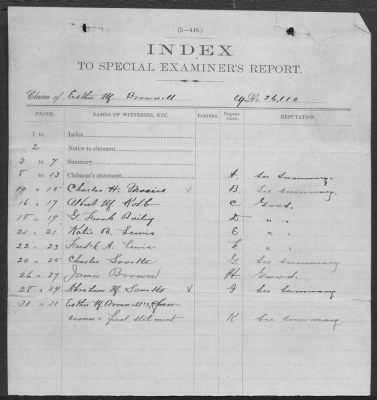 (5—448.)
INDEX
TO SPECIAL EXAMINER'S REPORT.
Claim of Esther M. Brownell No. 26,110
PAGES. NAMES OF WITNESSES, ETC. Exhibits. Deposition. REPUTATION.
1 to Index
2 Notice to claimant
3 to 7 Summary
8 to 13 Claimant's statement A See summary.
14 to 15 Charles H. B See summary.
16 to 17 Albert M. Kolb C Good.
18 to 19 G. Frank Baily D " "
20 to 21 Katie B. Lewis E " "
22 to 23 Fredk A. Lewis " "
24 to 25 Charles G See summary
26 to 27 James Brown H Good.
28 to 29 Abraham M. I See summary
30 to 31 Esther M Brownell's,
sioner's final statement K See summary